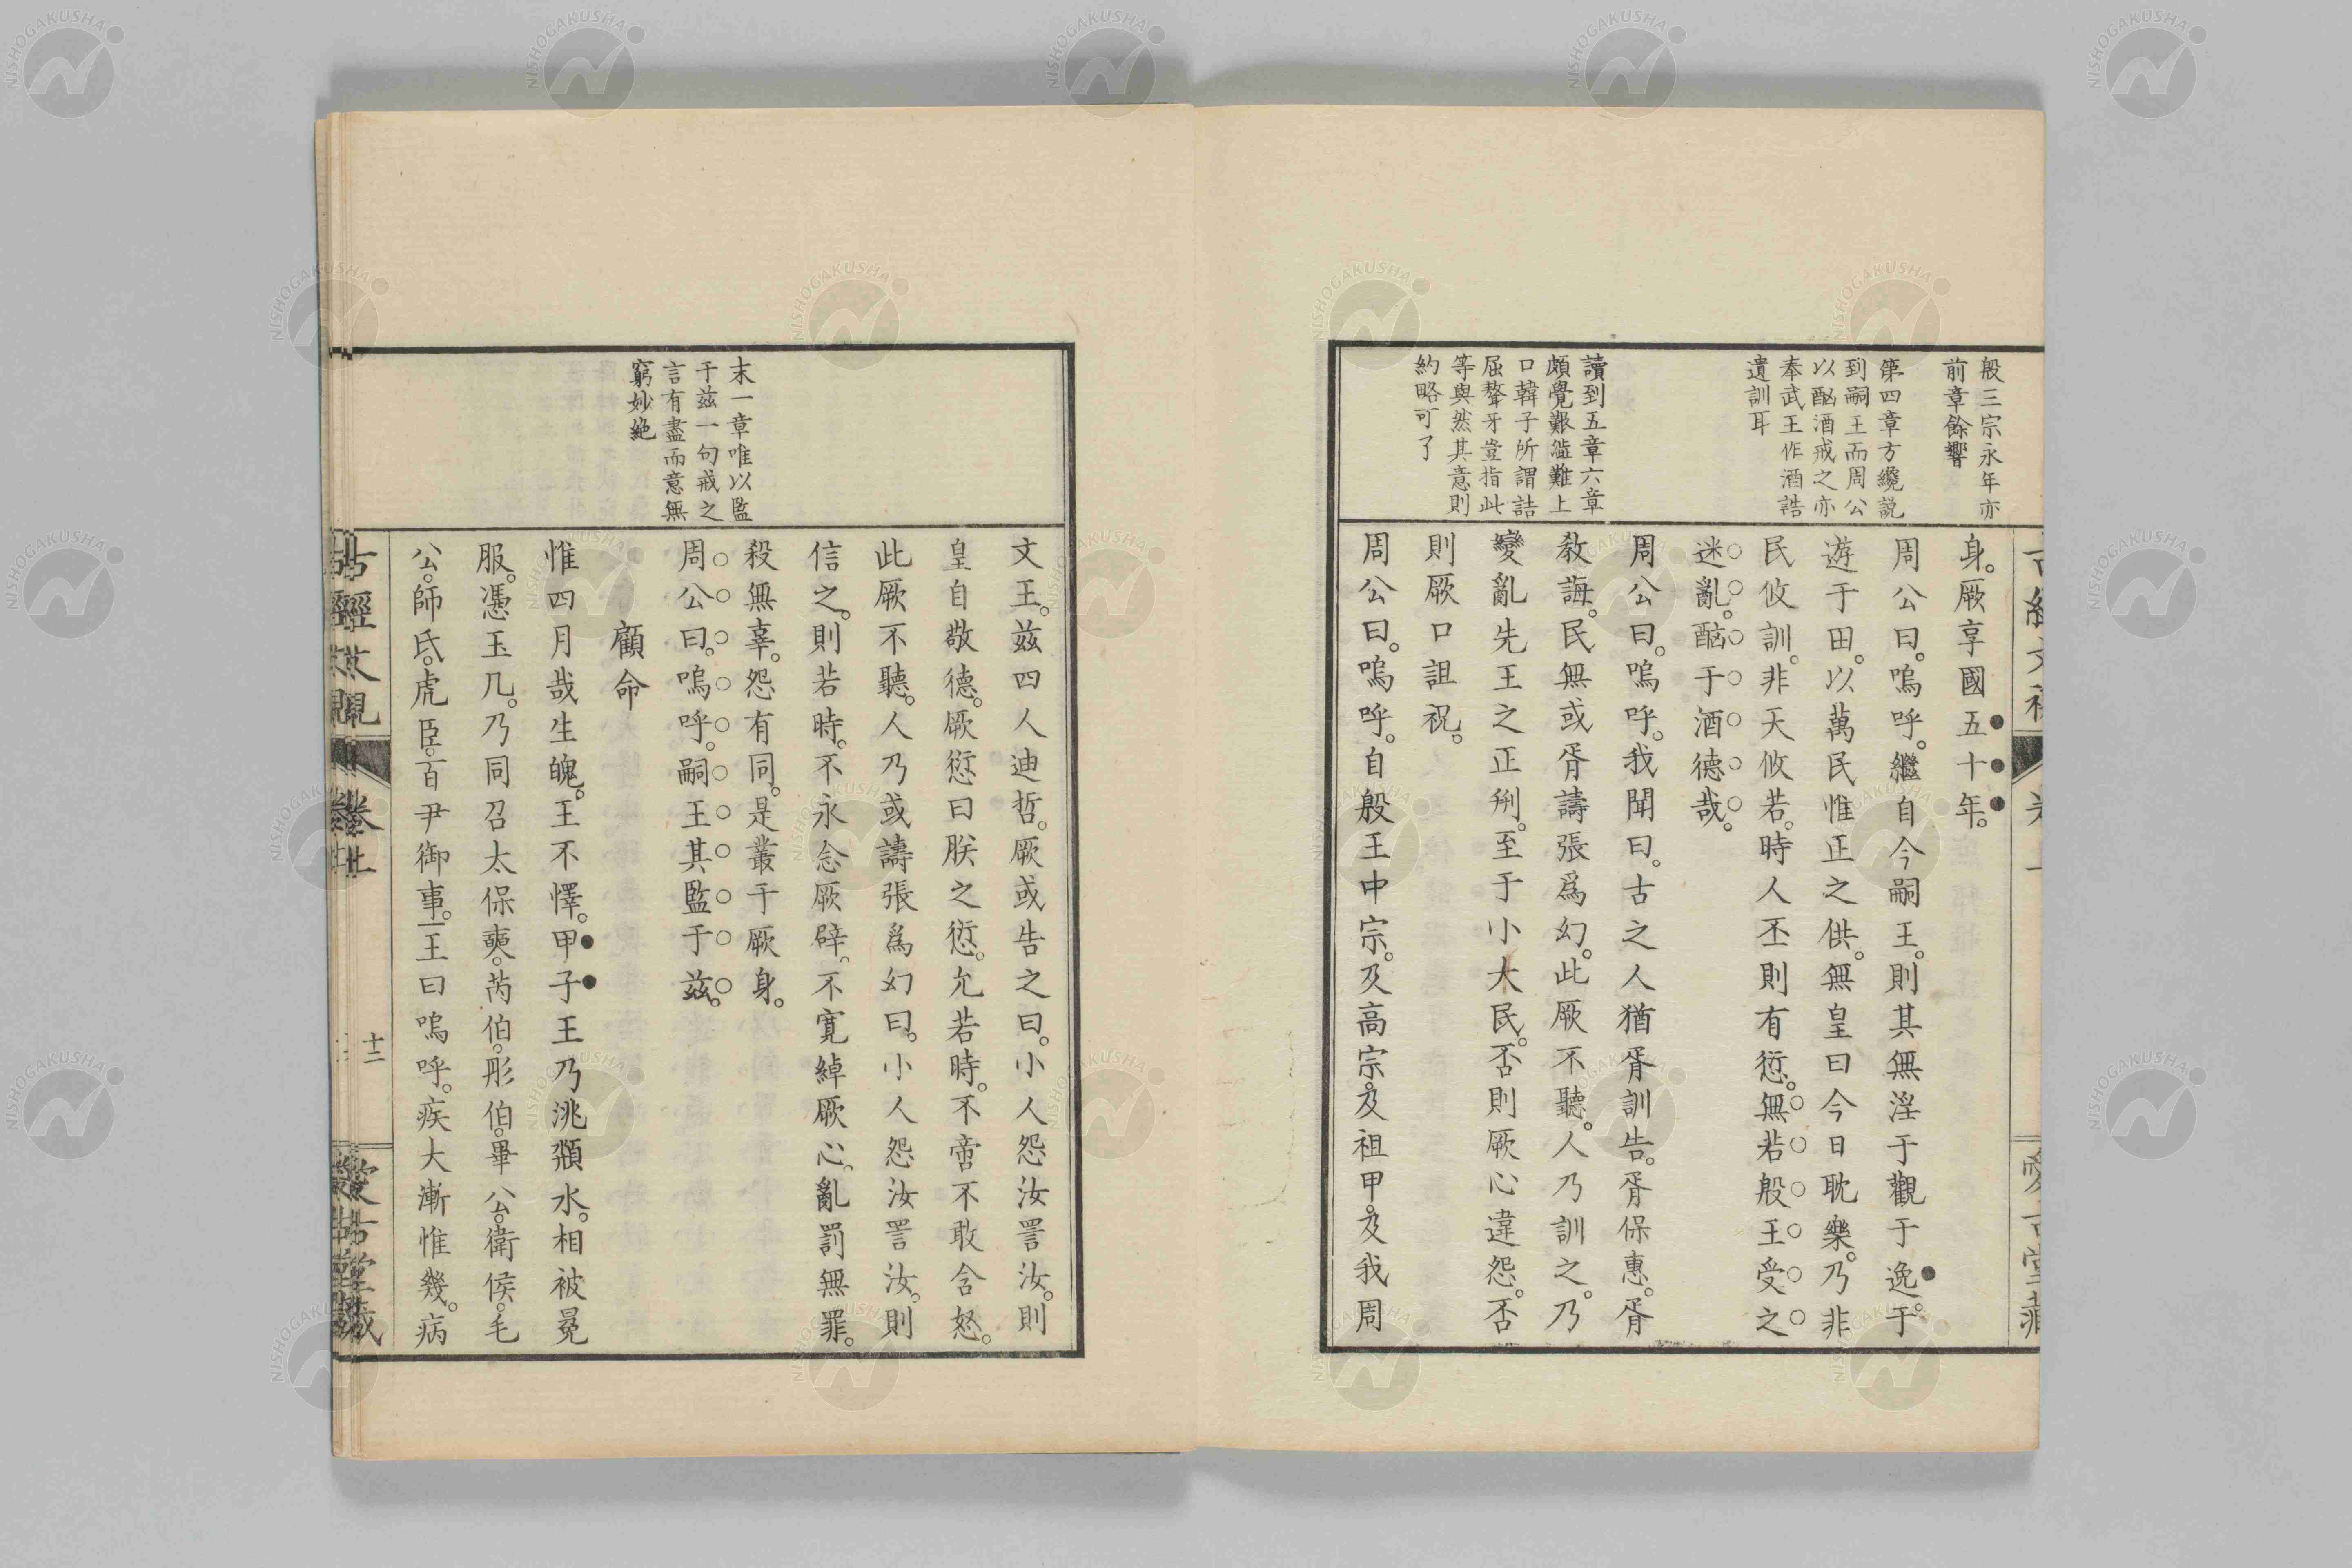 殷三宗永年亦
前章餘響
第四章方纔説
到嗣王而周公
以酗酒戒之亦
奉武王作酒誥
遺訓耳
讀到五章六章
頗覺艱澁難上
口韓子所謂詰
屈聱牙豈指此
等與然其意則
約略可了
身。厥享國五十年。
周公曰。嗚呼。繼自今嗣王。則其無淫于觀于逸。于
遊于田。以萬民惟正之供。無皇曰今日耽樂。乃非
民攸訓。非天攸若。時人丕則有愆。無若殷王受之
迷亂。酗于酒德哉。
周公曰。嗚呼。我聞曰。古之人猶胥訓告。胥保惠。胥
敎誨。民無或胥譸張爲幻。此厥不聽。人乃訓之。乃
變亂先王之正刑。至于小大民。否則厥心違怨。否
則厥口詛祝。
周公曰。嗚呼。自殷王中宗。及高宗。及祖甲。及我周
末一章唯以監
于茲一句戒之
言有盡而意無
窮妙絶
文王。茲四人迪哲。厥或告之曰。小人怨汝詈汝。則
皇自敬德。厥愆曰朕之愆。允若時。不啻不敢含怒。
此厥不聽。人乃或譸張爲幻曰。小人怨汝詈汝。則
信之。則若時。不永念厥辟。不寬綽厥心。亂罰無罪。
殺無辜。怨有同。是叢于厥身。
周公曰。嗚呼。嗣王其監于茲。
顧命
惟四月哉生魄。王不懌。甲子王乃洮頮水。相被冕
服。憑玉几。乃同召太保奭。芮伯。彤伯。畢公。衛侯。毛
公。師氏。虎臣。百尹御事。王曰嗚呼。疾大漸惟幾。病
古經文視 卷上 十二 愛古堂藏